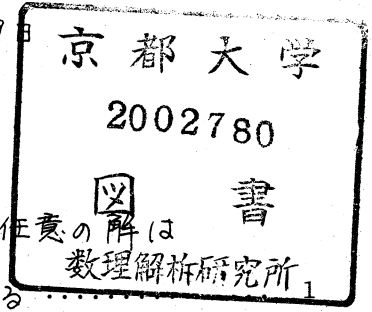 9日
京都大学
2002780
図書
任意の解は
数理解析研究所
1
る ..........